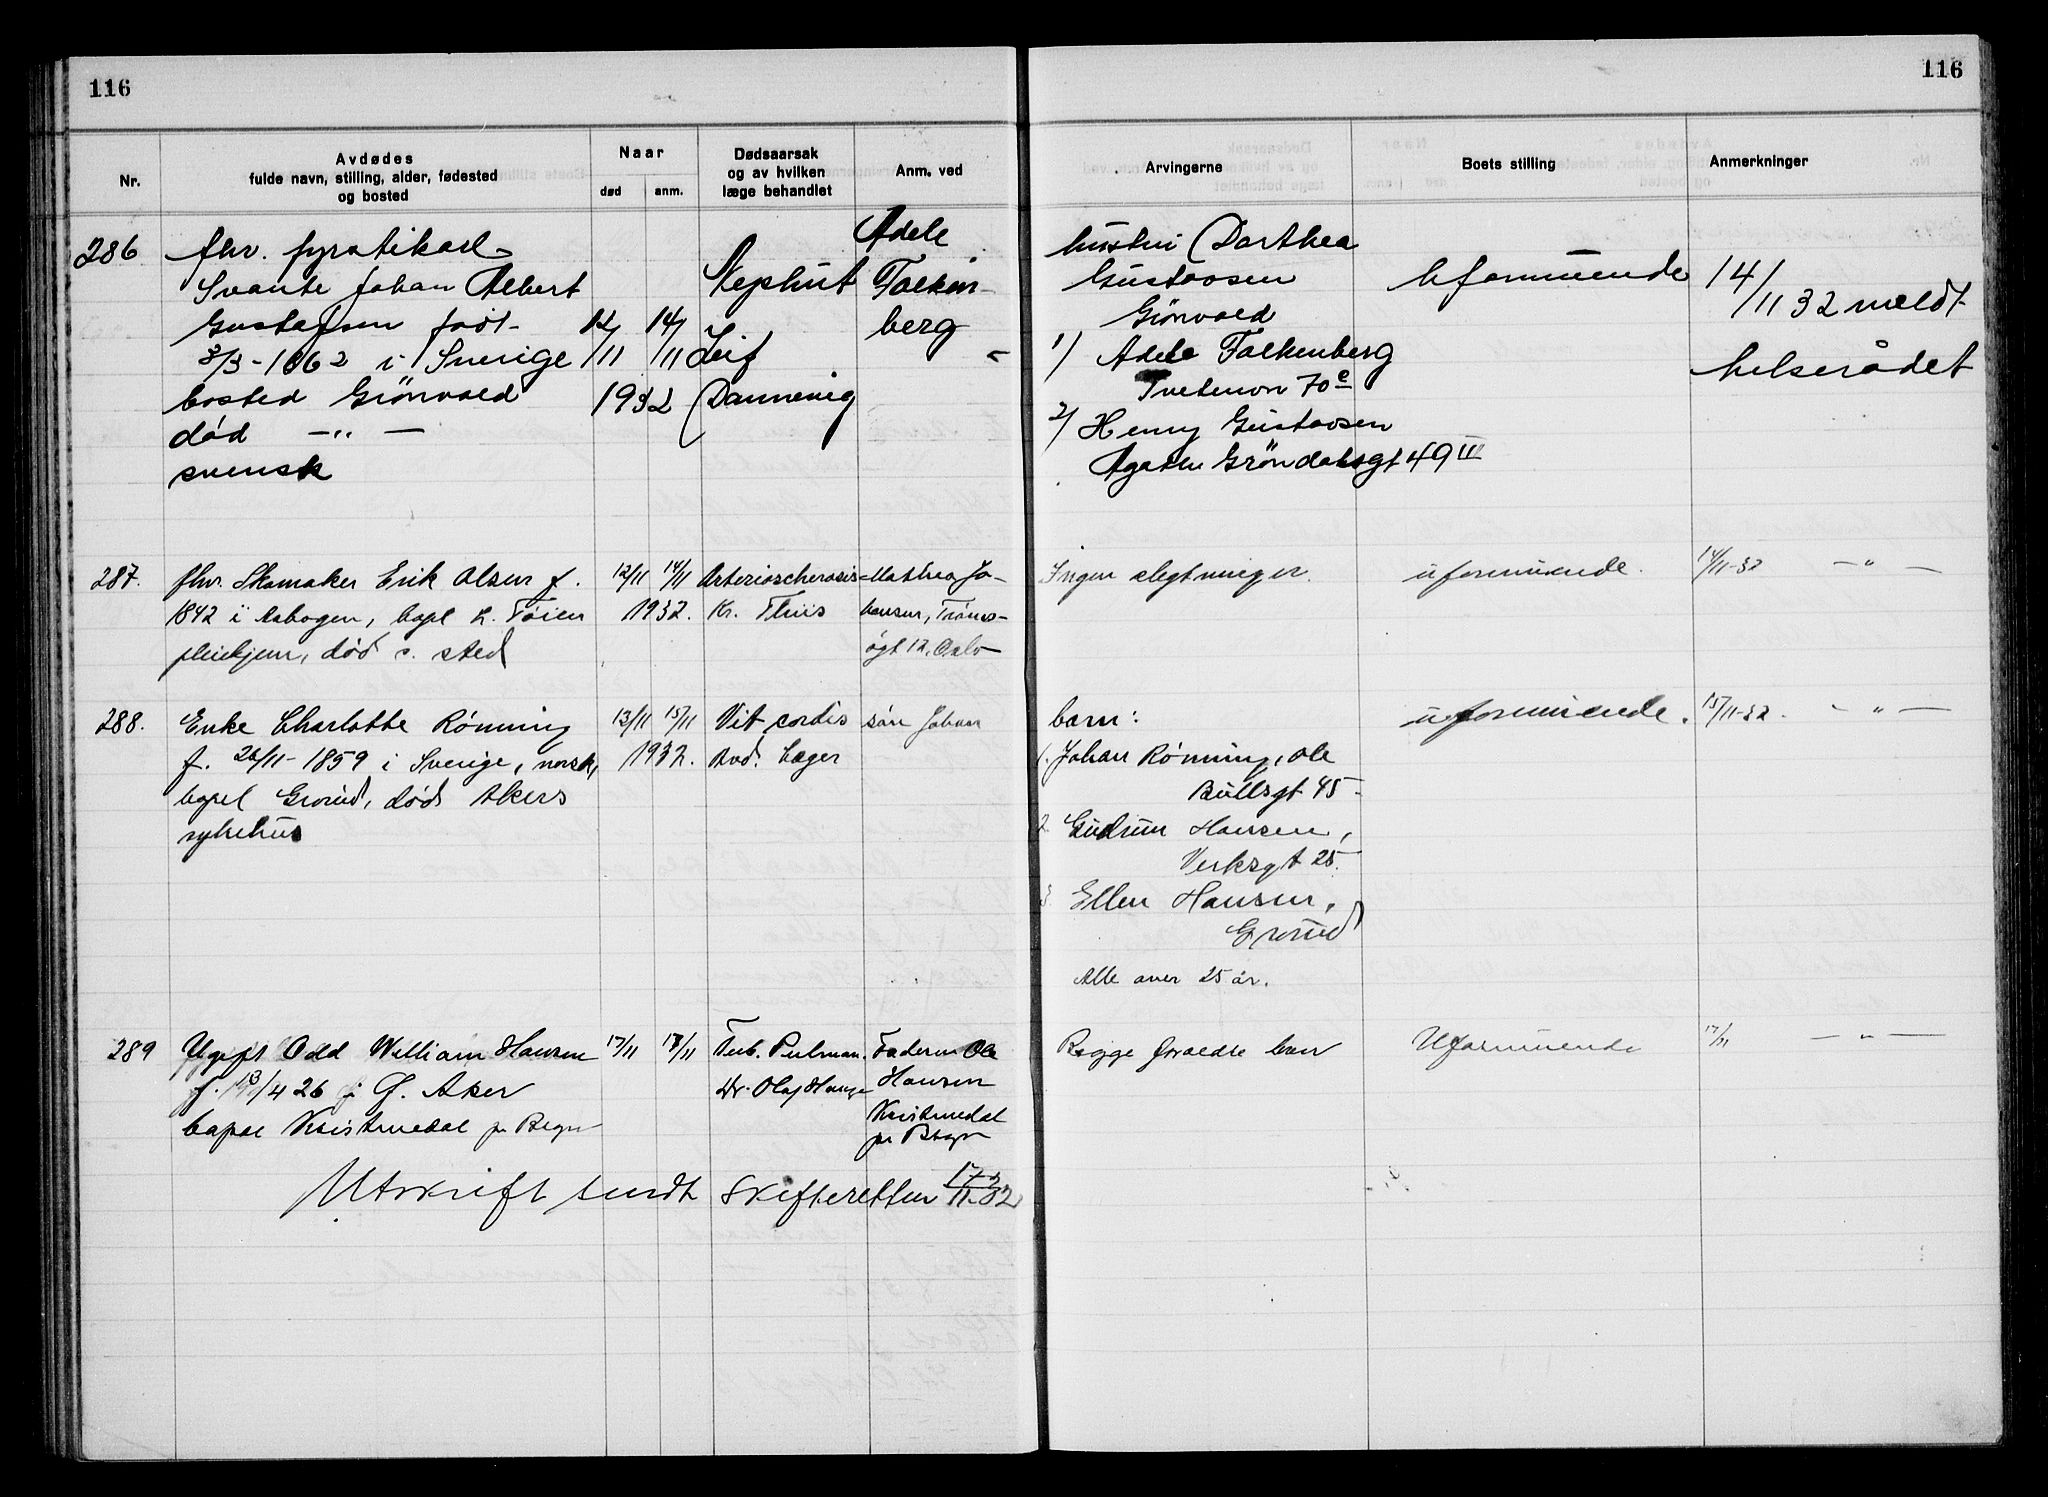 116
116
Nr.
Avdødes
fulde navn, stilling, alder, fødested
og bosted
Naar
død
anm.
Dødsaarsak
og av hvilken
læge behandlet
Anm. ved
Arvingerne
Boets stilling
Anmerkninger
286
fhv.
Svante Johan Albert
Gustafson født
3/3-1862 i Sverige
bosted Grönvold
død -"-
svensk
12/11
14/11
1932
Nephrit
Leif
Dannevig
Adele
Falken-
berg
hustru Dorthea
Gustavsen
Grönvold
1) Adele Falkenberg
Tvetenvn 70 e
2) Henny Gustavsen
Agathe Gröndalsgt 49 III
Uformuende
14/11 32 meldt
helserådet
287.
fhv. Skomaker Erik Olsen f.
1842 i Aabogen, bopl Ö. Töien
pleiehjem, död s. sted
12/11
14/11
1932.
Arteriosclerosis
Kr. Thiis
Mathea Jo-
hansen, Troms-
ögt 12, Oslo
Ingen slegtninger.
uformuende.
14/11-32 -"-
288.
Enke Charlotte Rönning
f. 26/11-1859 i Sverige, norsk,
bopel Grorud, död Akers
sykehus
13/11
15/11
1932.
Vit. cordis
And. Læger
sön Johan
barn:
1. Johan Rønning, Ole
Bullsgt 45
2. Gudrun Hansen,
Verksgt 25.
3. Ellen Hansen,
Grorud
Alle over 25 år.
uformuende.
15/11-32. -"-
289
Ugift Odd William Hansen
f. 13/4 26 i Ö. Aker
bopæl Kristinedal pr Bryn
17/11
17/11
Tub. Pulmon.
Dr. Olaf Hauge
Faderen Ole
Hansen
Kristinedal
pr Bryn
Begge foreldre lever
Uformuende
17/11 -"-
Utskrift sendt Skifteretten 17/11-32